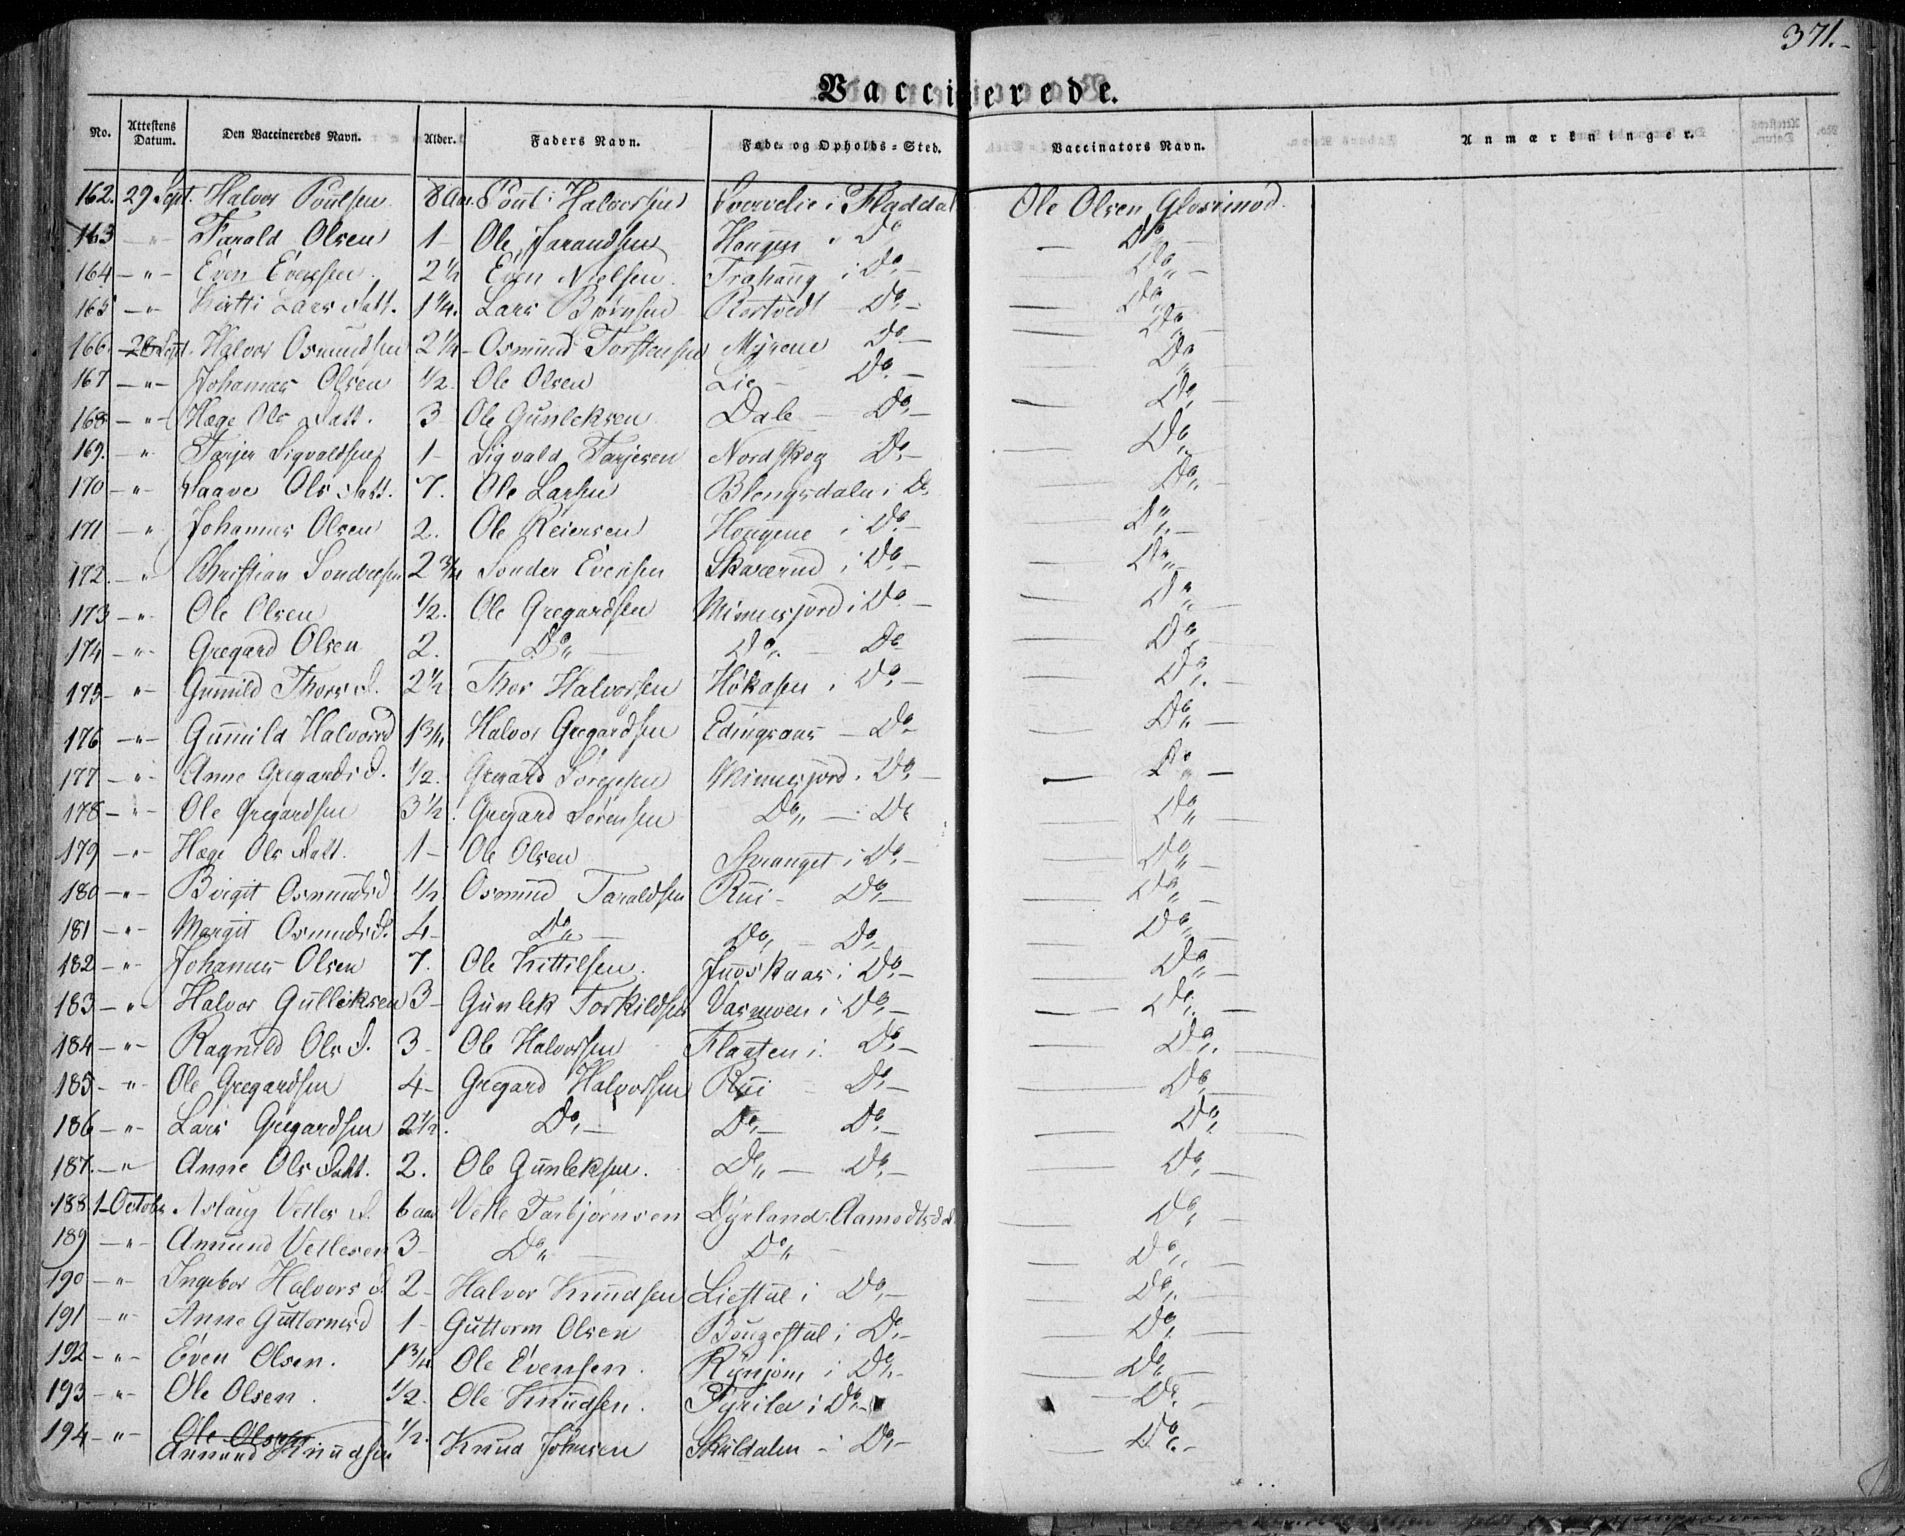 371.-
Vaccinerede.
No. Attestens Datum. Den Vaccineredes Navn. Alder. Faders Navn. Føde- og Opholds-Sted. Vaccinators Navn. Anmærkninger.
162. 29 Sept. Halvor Poulsen 8 Aar. Poul Halvorsen i Fladdal Ole Olsen Glosimod.
163 - " Tarald Olsen 1 - Ole Jarandsen Hougen i Do - Do -
164 - " - Even Evensen 2 1/2 Even Nielsen. Trahaug i Do - Do -
165 - " - Kitti Lars Datt. 1 1/4. Lars Børnsen Rortvedt Do - - Do
166. 26 Sept. Halvor Osmundsen 2 1/4 - Osmund Torstensen Myrene Do - - Do
167 - " - Johannes Olsen 1/2. Ole Olsen Lie - Do - - Do
168 - " - Hæge Ols Datt. 3 Ole Gunleksen Dale - Do - - Do -
169. - " Tarjer Sigvaldsen 1 - Sigvald Tarjesen Nordskog Do - - Do
170 - " Ols Datt. 7. Ole Larsen Blengsdalen i Do - Do -
171 - " Johannes Olsen 2. Ole Reiersen Hougene i Do - - Do -
172. - " Christian Sondresen 2 3/4 Sonder Evensen Skarerud i Do - - Do -
173 - " - Ole Olsen 1/2. Ole Gregardsen Minnesjord i Do - - Do -
174 - " - Gregard Olsen 2. Do " - Do " - Do - Do
175 - " Gunnild Thors D. 2 1/2 Thor Halvorsen Høkasen i Do - - Do
176 - " - Gunnild Halvorsd 1 3/4 Halvor Gregardsen - Do - - Do -
177 - " - Anne Gregards D. 1/2. Gregard Sørensen Minnesjord i Do - - Do -
178 - " - Ole Gregardsen 3 1/2. Gregard Sørensen Do " - Do - Do
179 - " Hæge Ols Datt. 1 - Ole Olsen i Do - - Do -
180 - " - Birgit Osmundsd 1/2 Osmund Taraldsen Rui - Do - - Do -
181 - " - Margit Osmunds D. 4 - Do " - Do " - Do - - Do
182 - " Johannes Olsen 7. Ole Kittilsen. Juvskaas i Do - - Do -
183 - " Halvor Gulleiksen 3 - Gunlek Torkildsen Vasmoen i Do - - Do -
184 - " - Ragnild Ols D. 3 - Ole Halvorsen Flaaten i Do - - Do
185 - " Ole Gregardsen 4 - Gregard Halvorsen Rui - Do - - Do -
186 - " - Lars Gregardsen 2 1/2. Do - Do - Do - - Do
187. - " Anne Ols Datt. 2. Ole Gunleksen. Do " - Do - - Do -
188. 1 October Aslaug Vetles D. 6 aar Vetle Torbjørnsen Dyrland Aamodtsd. - Do -
189 - " - Anund Vetlesen 3 - Do " - Do " - - Do
190 - " Ingebor Halvors D. 2 - Halvor Knudsen Liestul i Do - - Do -
191 - " Anne Guttormsd 1 - Guttorm Olsen Bougestul i Do - - Do -
192 - " - Even Olsen. 1 3/4. Ole Evensen. Rynjom i Do - - Do -
193 - " Ole Olsen. 1/2. Ole Knudsen. i Do - - Do -
194 - " Ole Olsen 1/2. Knud Johnsen Skuldalen - i Do - - Do -
Anund Knudsen